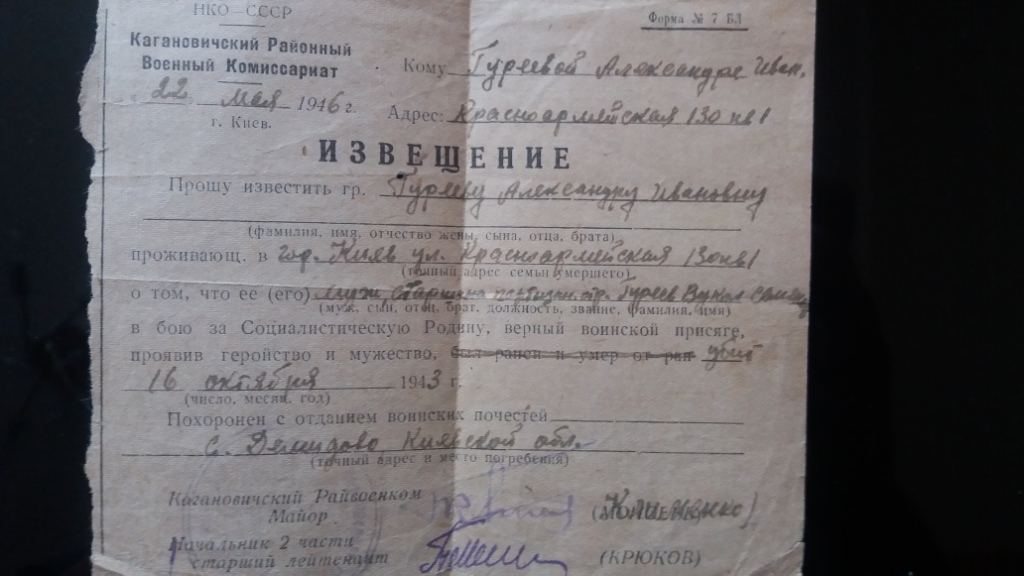 НКО СССР
Форма № 7 БЛ
Кагановичский Районный
Военный Комиссариат
22 мая 1946 г.
г. Киев.
Кому Гуреевой Александре Иван.
Адрес: Красноармейская 130 кв 1
ИЗВЕЩЕНИЕ
Прошу известить гр. Гурееву Александру Ивановну
(фамилия, имя, отчество жены, сына, отца, брата)
проживающ. в гор. Киев ул. Красноармейская 130 кв 1
(точный адрес семьи умершего)
о том, что ее (его) муж старшина партизан. отр. Гуреев Вукол
(муж, сын, отец, брат, должность, звание, фамилия, имя)
в бою за Социалистическую Родину, верный воинской присяге,
проявив геройство и мужество, был ранен и умер от ран убит
16 октября 1943 г.
(число, месяц, год)
Похоронен с отданием воинских почестей
с. Демидово Киевской обл.
(точный адрес и место погребения)
Кагановичский Райвоенком
Майор (Клименко)
Начальник 2 части
старший лейтенант (КРЮКОВ)